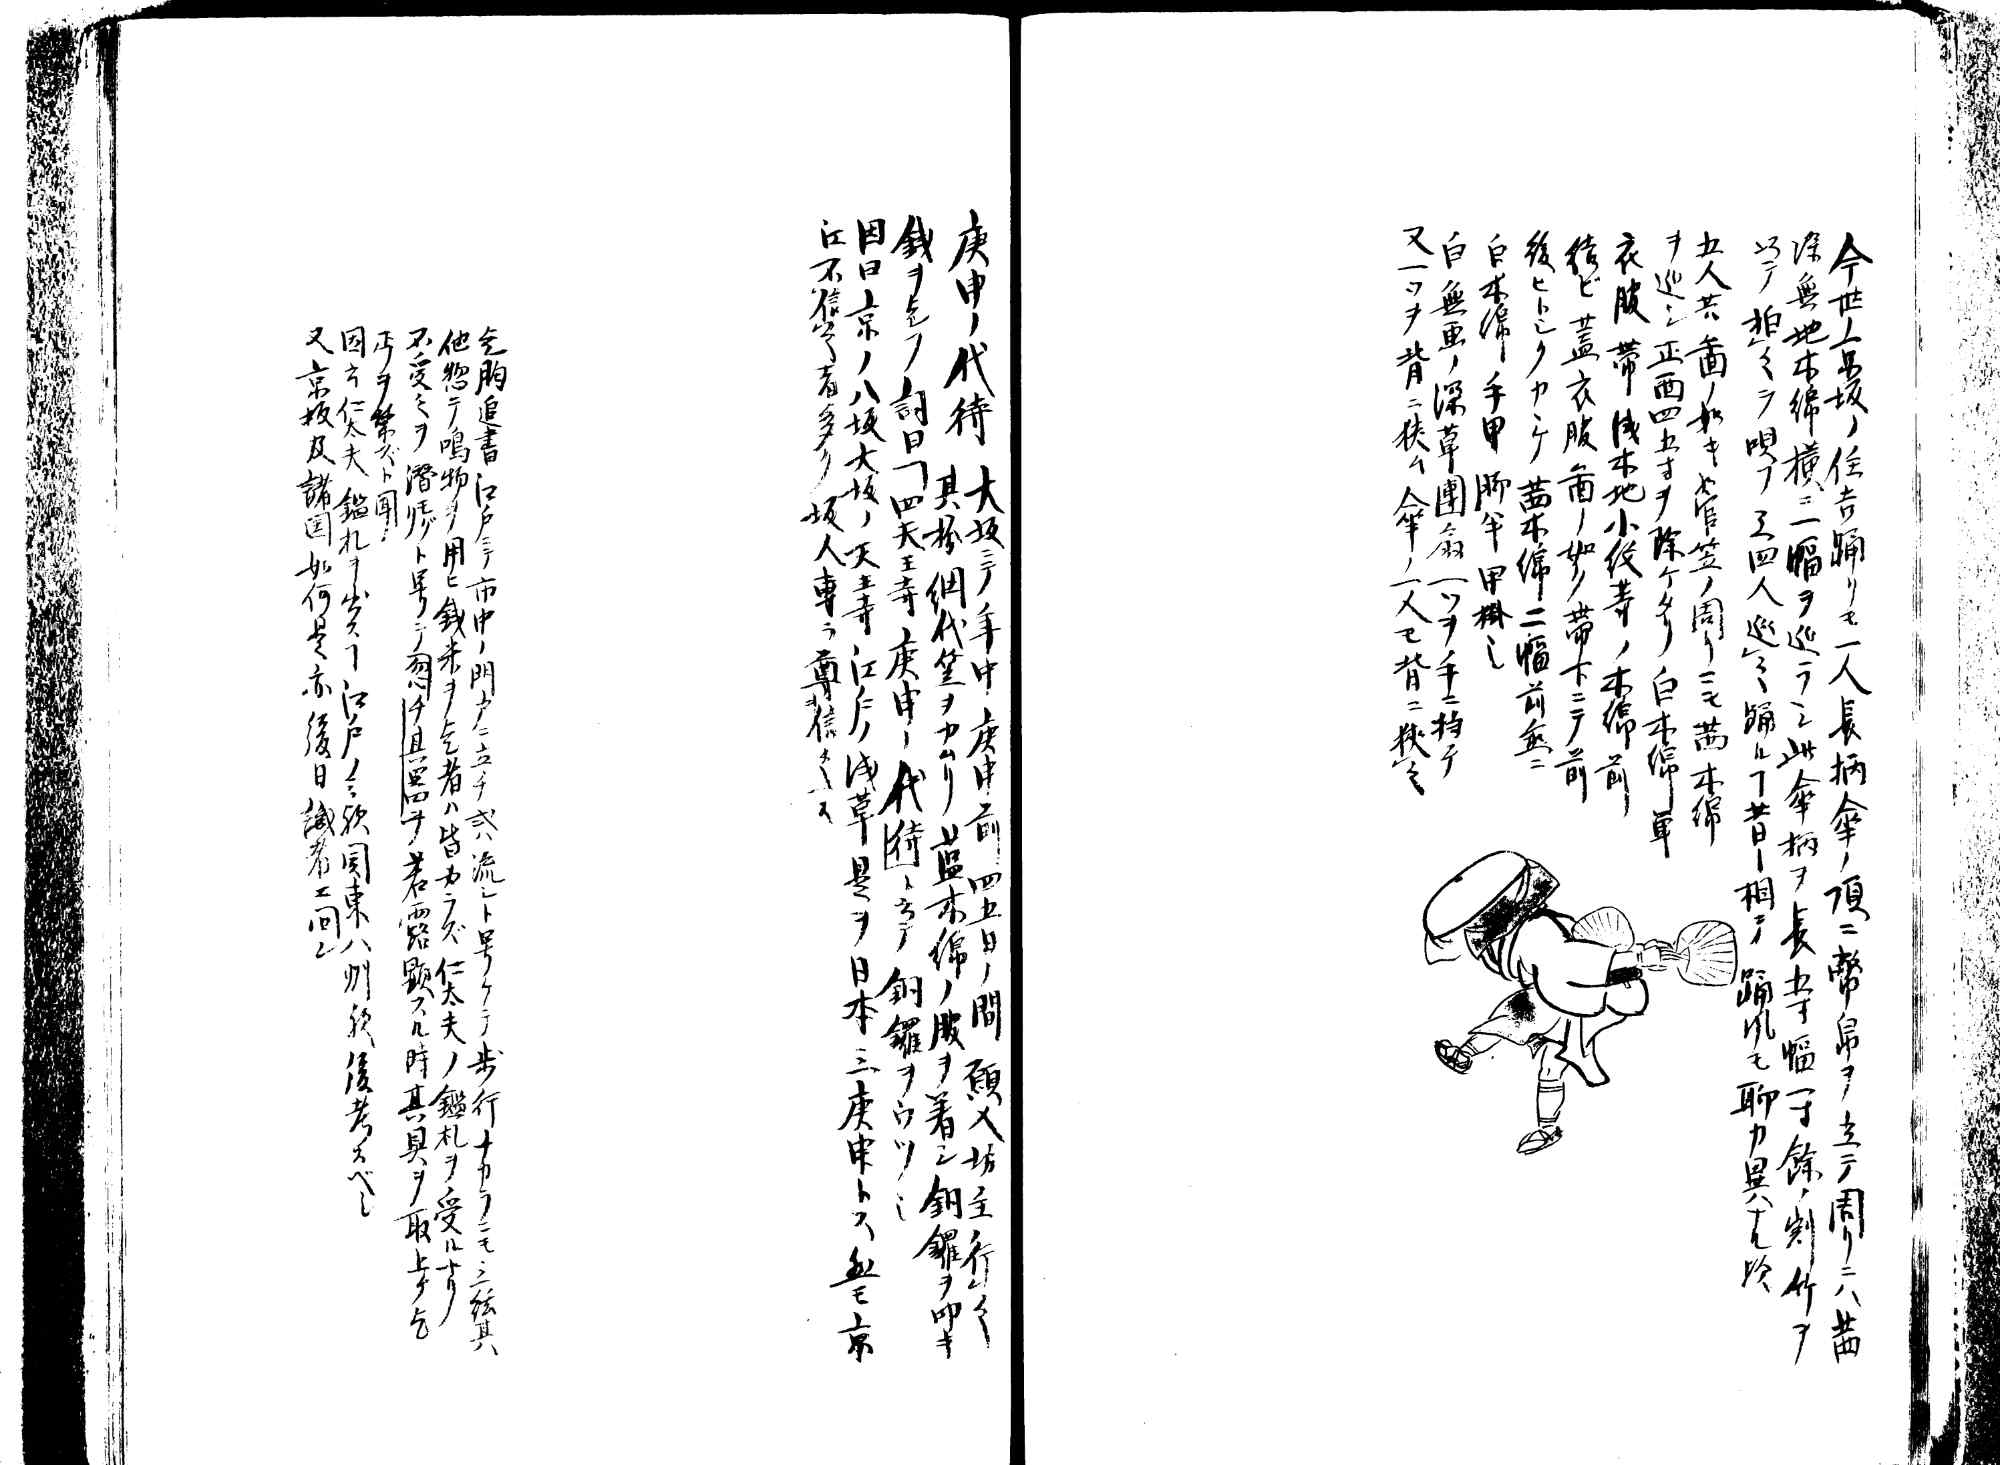 今世京坂ノ住吉踊リモ一人長柄傘ノ頂ニ幣帛ヲ立テ周リニハ茜
染無地木綿横ニ二幅ヲ巡ラシ此傘柄ヲ長五寸幅一寸餘ノ割竹ヲ
以テ拍〻ラ唄フ又四人巡〻踊ルヿ昔ト相ヲ踊風モ聊カ異ナル
五人共ニ図ノ如キ菅笠ノ周リニモ茜木綿
ヲ巡シ正面四五寸ヲ除ケタリ白木綿単
衣服帯浅木地小紋等ノ木綿前
結ビ蓋衣服図ノ如ク帯下ニテ前
後ヒトシクカヽゲ茜木綿二幅前垂ニ
白木綿ノ手甲脚半甲掛シ
白無画ノ深草團扇一ツヲ手ニ持テ
又一ツヲ背ニ狭ム傘ノ一人モ背ニ狭〻
庚申ノ代待 大坂ニテ年中庚申前四五日ノ間願人坊主ノ行〻
其扮網代笠ヲカムリ藍木綿ノ服ヲ着シ銅鑼ヲ叩キ
銭ヲ乞フノ詞曰「四天王寺庚申ノ代待ト云テ銅鑼ヲウツ〻
因曰京ノ八坂大坂ノ天王寺江戸ノ浅草是ヲ日本三庚申トス然モ京
江不信ノ者多ク坂人専ラ尊信〻ス
乞胸追書 江戸ニテ市中ノ門戸ニ立チ或ハ流シト号ケテ歩行ナカラニモ三絃其
他惣テ鳴物ヲ用ヒ銭米ヲ乞者ハ皆カナラズ仁太夫ノ鑑札ヲ受ルナリ
不受之ヲ潜リト号シ忽チ具ヲ若露顕スル時其具ヲ取上ケ乞
丐ヲ禁ズト聞ク
因云仁太夫鑑札ヲ出スヿ江戸ノミ歟関東八州歟後考スベシ
又京坂及諸国如何是亦後日識者ニ問ン